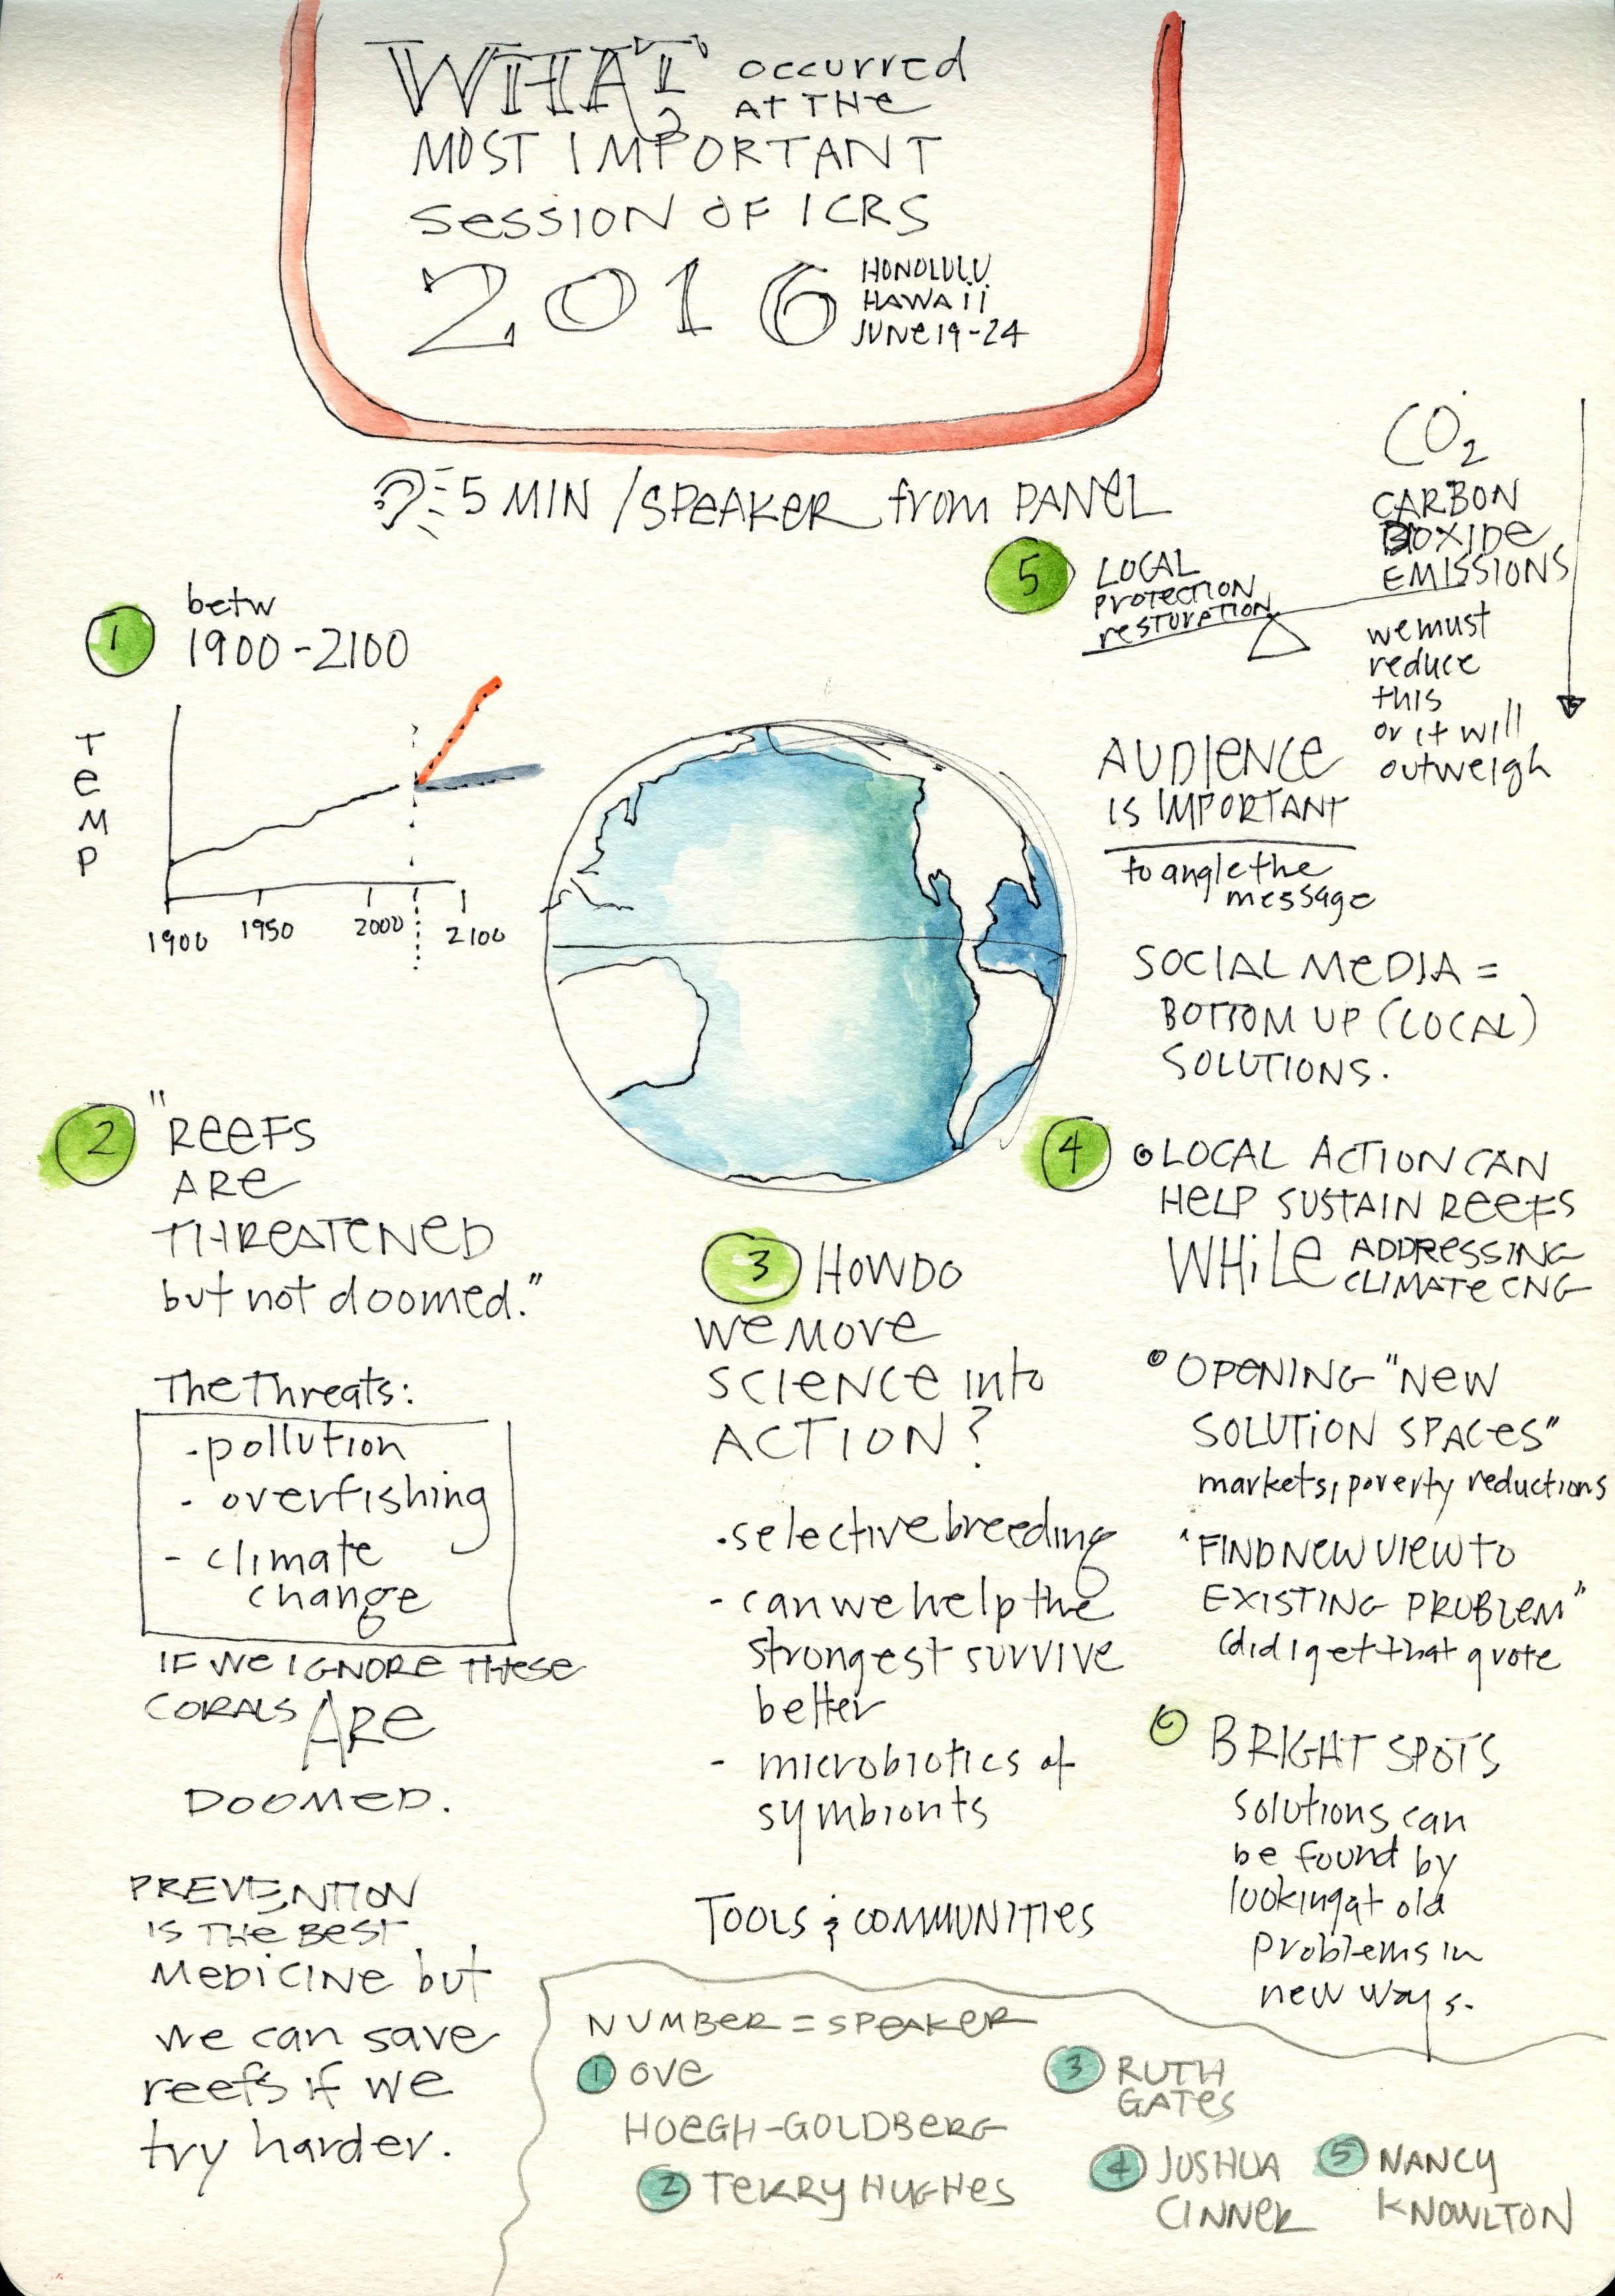 WHAT occurred
AT THE
MOST IMPORTANT
SESSION OF ICRS
2016
HONOLULU
HAWAII
JUNE 19-24
5 MIN / SPEAKER from PANEL
1
betw
1900-2100
TEMP
1900 1950 2000 2100
2
"REEFS
ARE
THREATENED
but not doomed."
The Threats:
- pollution
- overfishing
- climate
change
IF WE IGNORE THESE
CORALS ARE
DOOMED.
PREVENTION
IS THE BEST
MEDICINE but
we can save
reefs if we
try harder.
3 HOW DO
WE MOVE
SCIENCE into
ACTION?
• selective breeding
- can we help the
strongest survive
better
- microbiotics of
symbionts
TOOLS & COMMUNITIES
5 LOCAL
PROTECTION
RESTORATION
CO2
CARBON
DIOXIDE
EMISSIONS
we must
reduce
this
or it will
outweigh
AUDIENCE
IS IMPORTANT
to angle the
message
SOCIAL MEDIA =
BOTTOM UP (LOCAL)
SOLUTIONS.
4 • LOCAL ACTION CAN
HELP SUSTAIN REEFS
WHILE ADDRESSING
CLIMATE CNG
• OPENING "NEW
SOLUTION SPACES"
markets, poverty reductions
"FIND NEW VIEW TO
EXISTING PROBLEM"
(did I get that quote
BRIGHT SPOTS
solutions can
be found by
looking at old
problems in
new ways.
NUMBER = SPEAKER
1 OVE
HOEGH-GOLDBERG
2 TERRY HUGHES
3 RUTH
GATES
4 JOSHUA
CINNER
5 NANCY
KNOWLTON